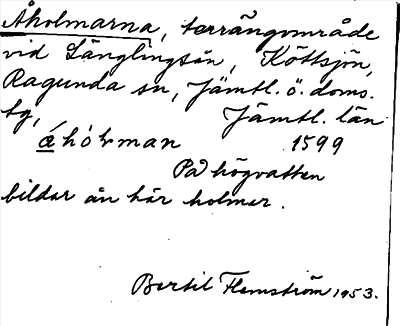 Åholmarna, terrängområde
vid Långlingsån, Köttsjön,
Ragunda sn, Jämtl. ö. doms.
tg, Jämtl. län
1599
På högvatten
bildar ån här holmar.
Bertil Flemström 1953.